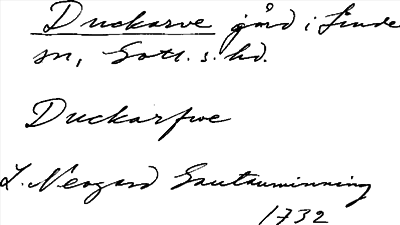 Duckarve gård i Linde
sn, Gotl. s. hd.
Duckarfwe
L. Neogard Gautauminning
1732